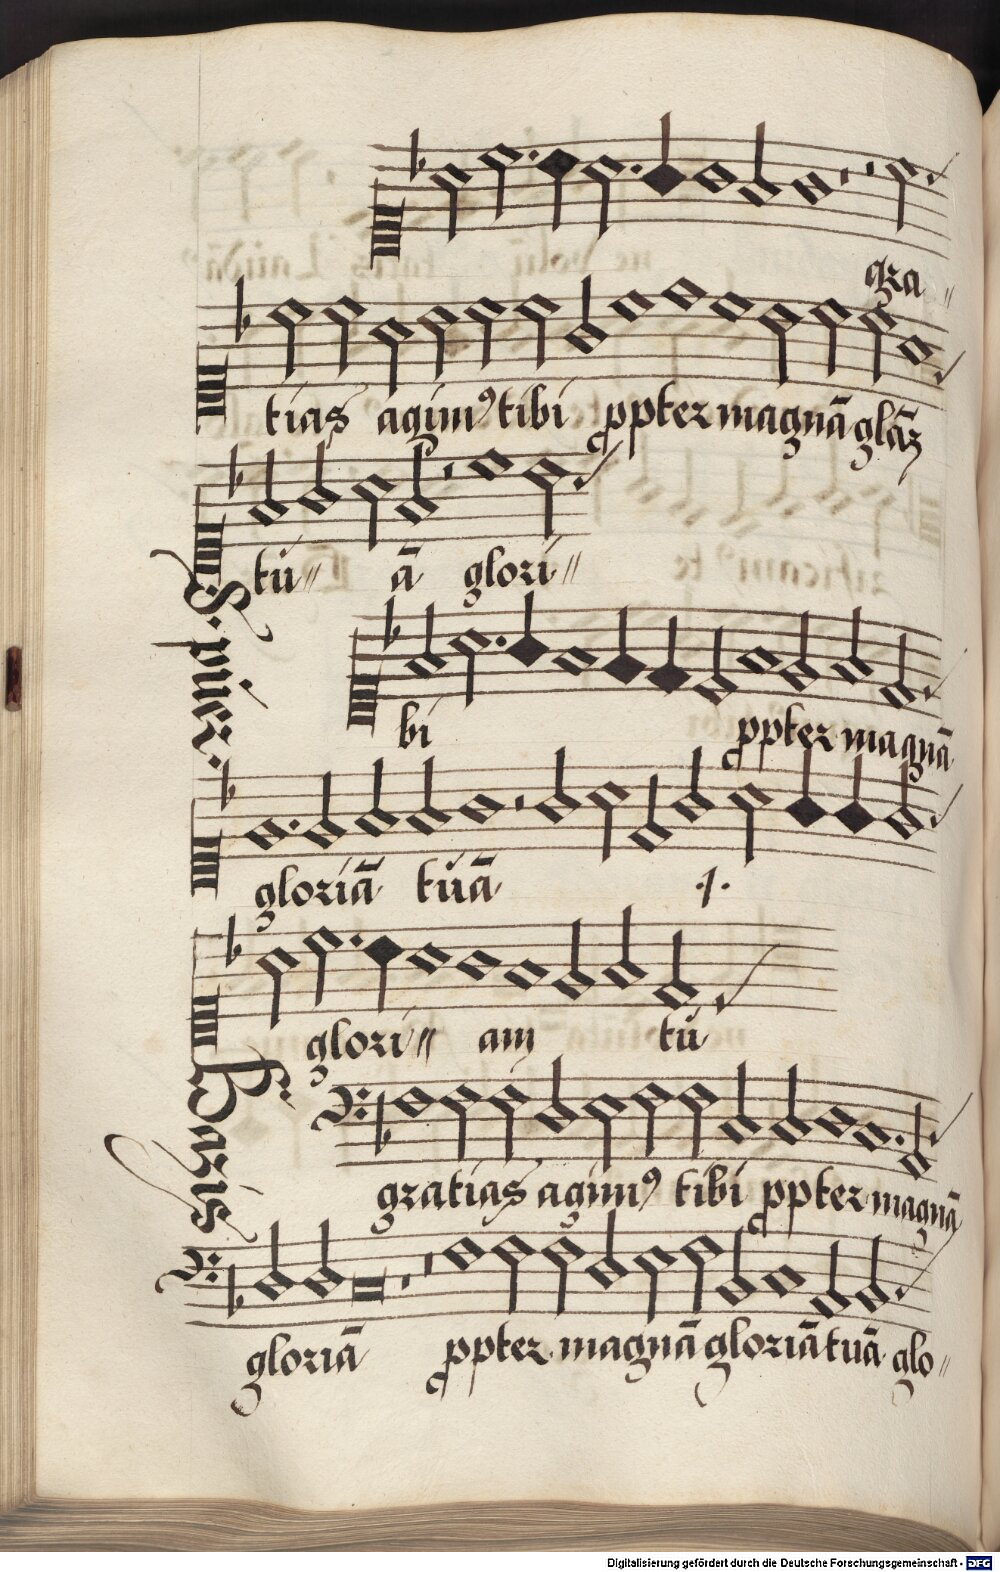 gra
tias agim⁹ tibi ꝓpter magnā glāȝ
tu ā glori
S. puer.
bi ꝓpter magnā
gloriā tuā .1.
glori am tu
Baris
gratias agim⁹ tibi ꝓpter magnā
gloriā ꝓpter magnā gloriā tuā glo
Digitalisierung gefördert durch die Deutsche Forschungsgemeinschaft - DFG